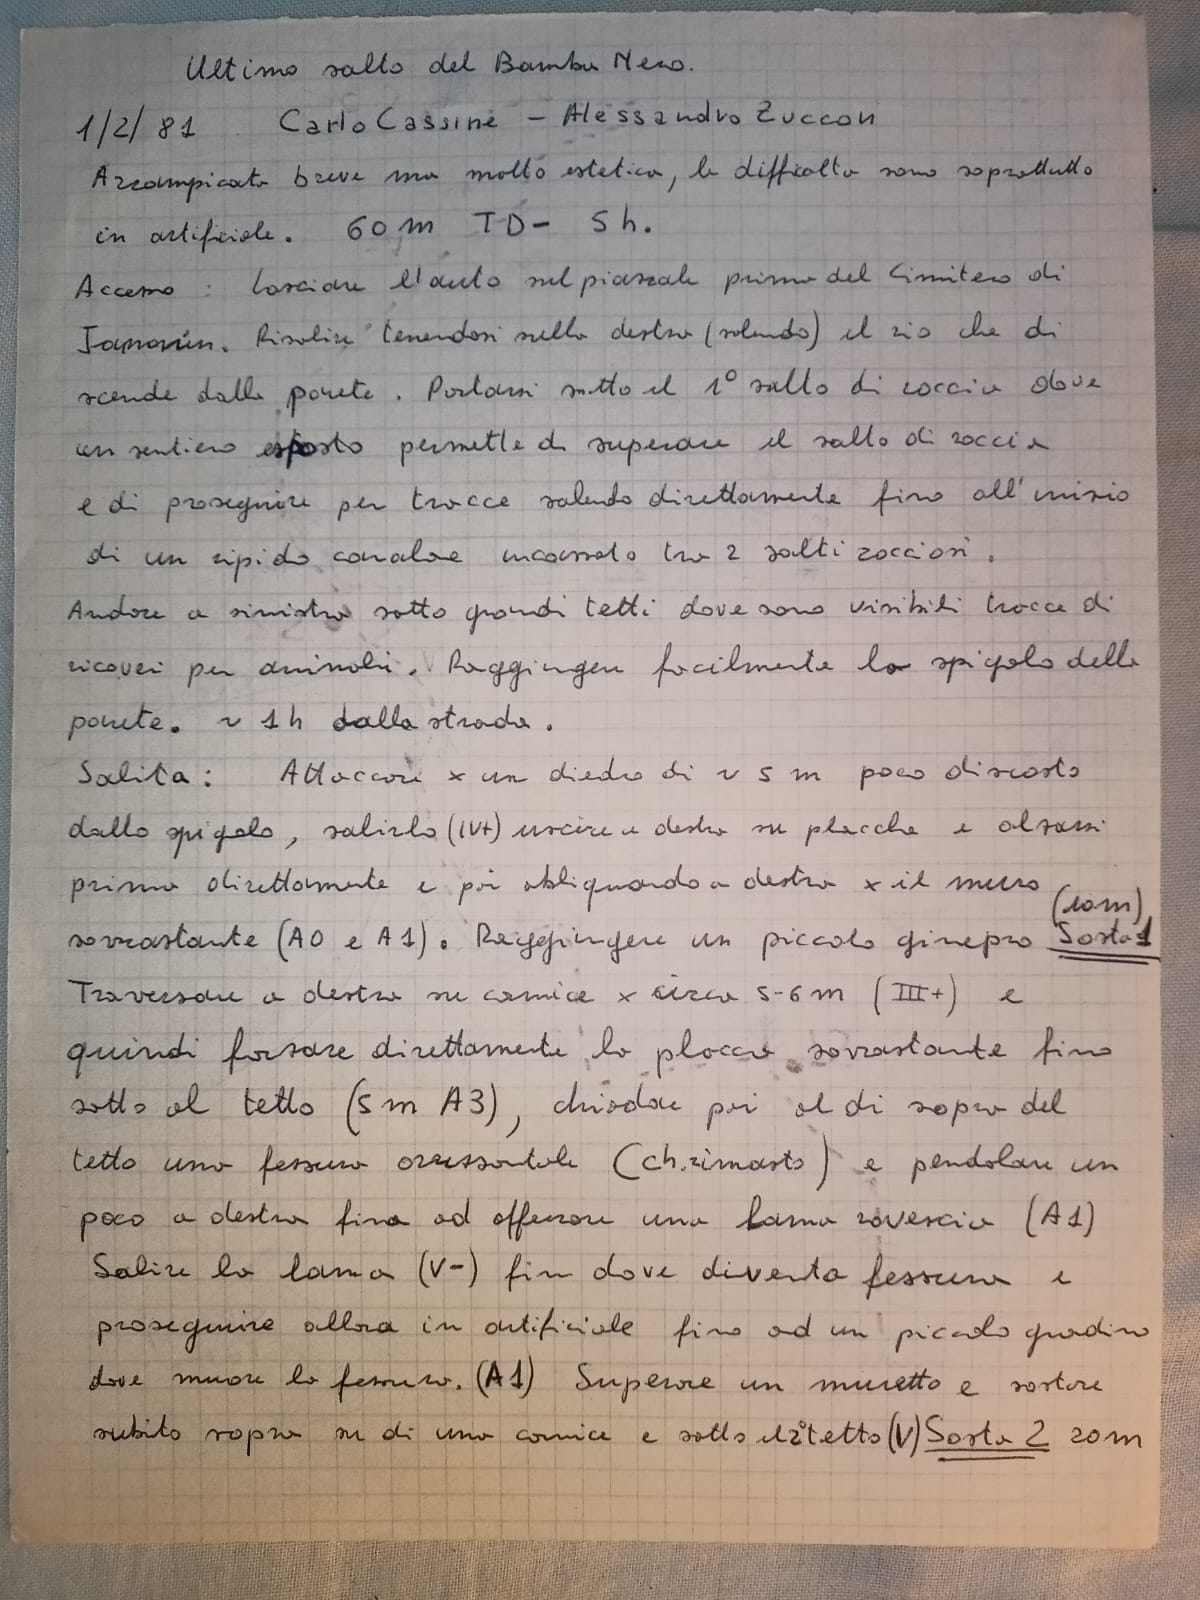 Ultimo salto del Bambu Nero.
1/2/81 Carlo Cassine - Alessandro Zuccon
Arrampicata breve ma molto estetica, le difficolta sono soprattutto
in artificiale. 60 m TD- 5 h.
Accesso : Lasciare l'auto sul piazzale prima del Cimitero di
Risalire tenendosi sulla destra (salendo) il rio che di
scende dalla parete. Portarsi sotto il 1° salto di roccia dove
un sentiero esposto permette di superare il salto di roccia
e di proseguire per tracce salendo direttamente fino all'inizio
di un ripido canalone incassato tra 2 salti rocciosi.
Andare a sinistra sotto grandi tetti dove sono visibili tracce di
ricoveri per animali. Raggiungere facilmente lo spigolo della
parete. ~ 1 h dalla strada.
Salita : Attaccare x un diedro di ~ 5 m poco discosto
dallo spigolo, salirlo (IV+) uscire a destra su placche e alzarsi
prima direttamente e poi obliquando a destra x il muro
sovrastante (A0 e A1). Raggiungere un piccolo ginepro Sosta 1 (20m)
Traversare a destra su cornice x circa 5-6 m (III+) e
quindi forzare direttamente la placca sovrastante fino
sotto al tetto (5 m A3), chiodare poi al di sopra del
tetto una fessura orizzontale (ch. rimasto) e pendolare un
poco a destra fino ad afferrare una lama rovescia (A1)
Salire la lama (V-) fin dove diventa fessura e
proseguire allora in artificiale fino ad un piccolo gradino
dove muore la fessura. (A1) Superare un muretto e sostare
subito sopra su di una cornice e sotto il 2° tetto (V) Sosta 2 20m